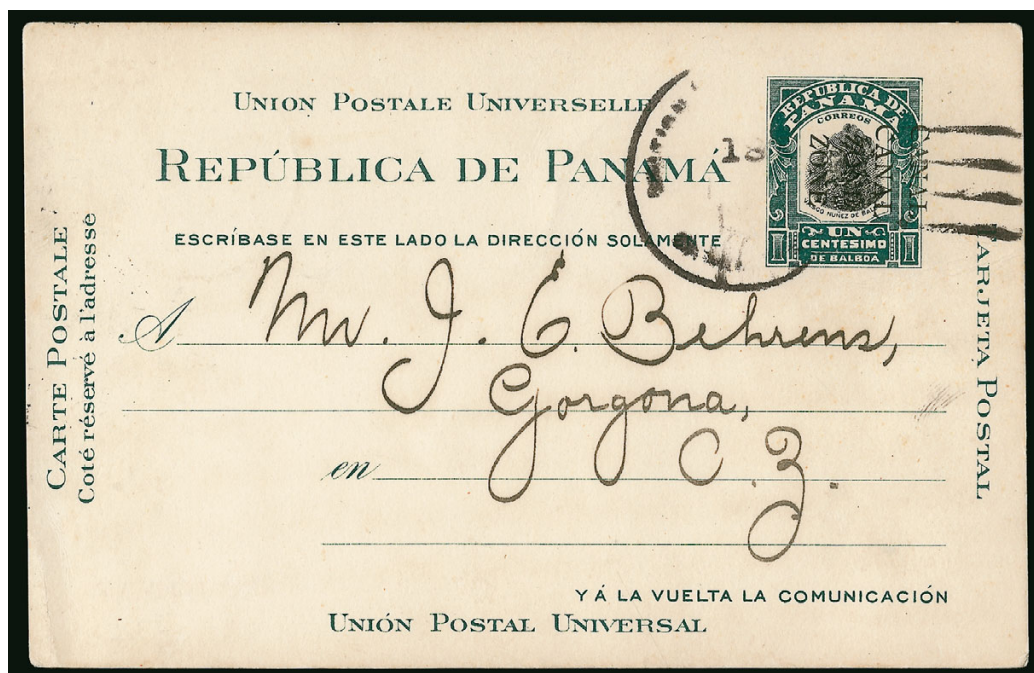 UNION POSTALE UNIVERSELLE
REPÚBLICA DE PANAMÁ
ESCRÍBASE EN ESTE LADO LA DIRECCIÓN SOLAMENTE
CARTE POSTALE
Coté réservé à l'adresse
REPUBLICA DE
PANAMA
CORREOS
VASCO NUÑEZ DE BALBOA
UN
CENTESIMO
DE BALBOA
1 1
CANAL
ZONE
CANAL
18
TARJETA POSTAL
A Mr. J. E. Behrens,
Gorgona,
en C.Z.
Y Á LA VUELTA LA COMUNICACIÓN
UNIÓN POSTAL UNIVERSAL